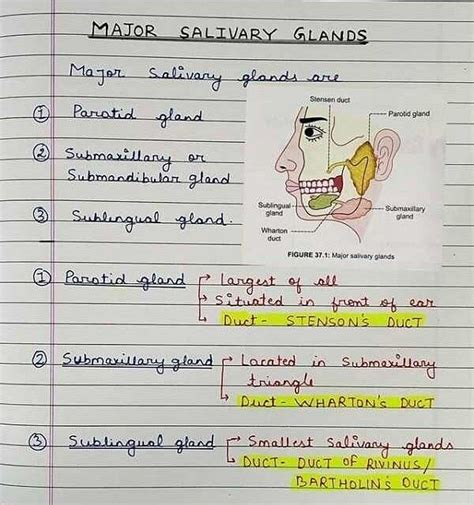 MAJOR SALIVARY GLANDS
Major salivary glands are
① Parotid gland
② Submaxillary or
Submandibular gland
③ Sublingual gland.
Stensen duct
Parotid gland
Sublingual
gland
Submaxillary
gland
Wharton
duct
FIGURE 37.1: Major salivary glands
① Parotid gland → largest of all
→ Situated in front of ear
Duct - STENSON'S DUCT
② Submaxillary gland → Located in Submaxillary
triangle
→ Duct - WHARTON'S DUCT
③ Sublingual gland → Smallest Salivary glands
→ DUCT - DUCT OF RIVINUS/
BARTHOLIN'S DUCT